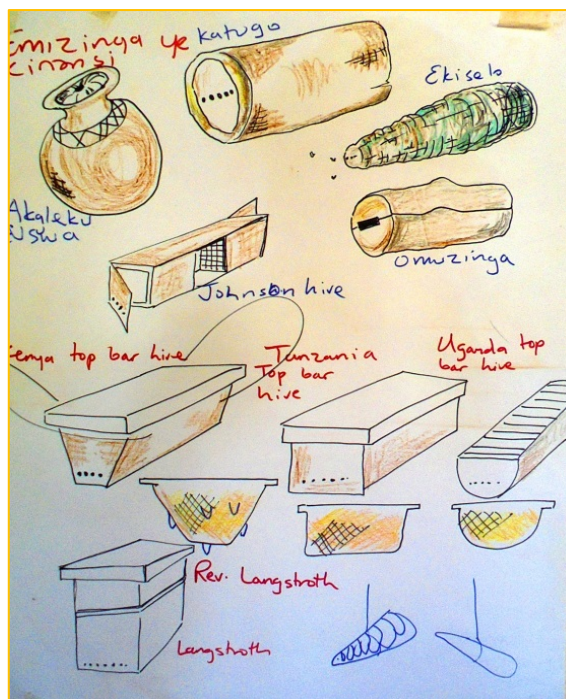 Emizinga ye
Kinansi
Katugo
Ekiselo
Akaleku
Nswa
Omuzinga
Johnson hive
Kenya top bar hive
Tanzania
Top bar
hive
Uganda top
bar hive
Rev. Langstroth
Langstroth